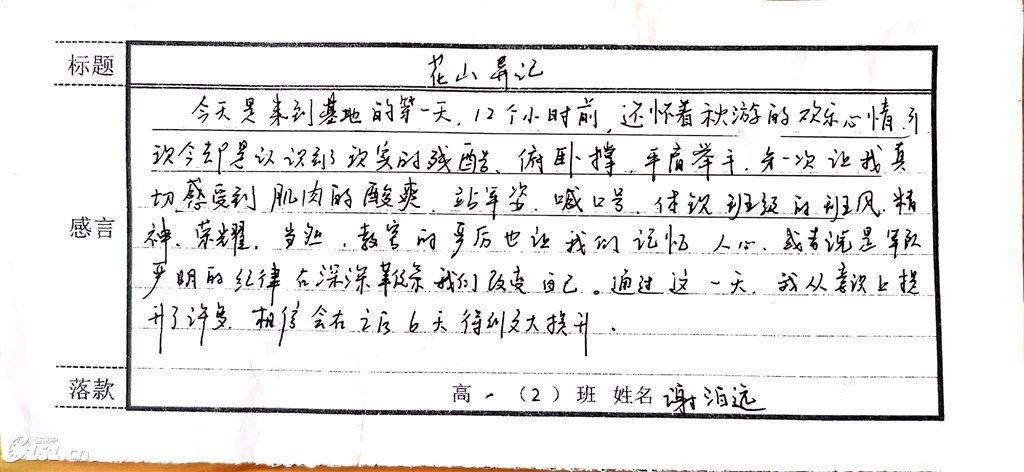 标题 花山寻记
今天是来到基地的第一天,12个小时前,还怀着秋游的欢乐心情,
现今却是认识到了现实的残酷、俯卧撑、平肩举手,每一次让我真
切感受到肌肉的酸爽,站军姿,喊口号,体现班级的班风、精
感言 神、荣耀,当然,教官的严厉也让我们记忆 人心,或者说是军队
严明的纪律在深深 我们改变自己。通过这一天,我从意识上提
升了许多,相信会在之后6天得到更大提升。
落款 高一(2)班 姓名 谢泊远